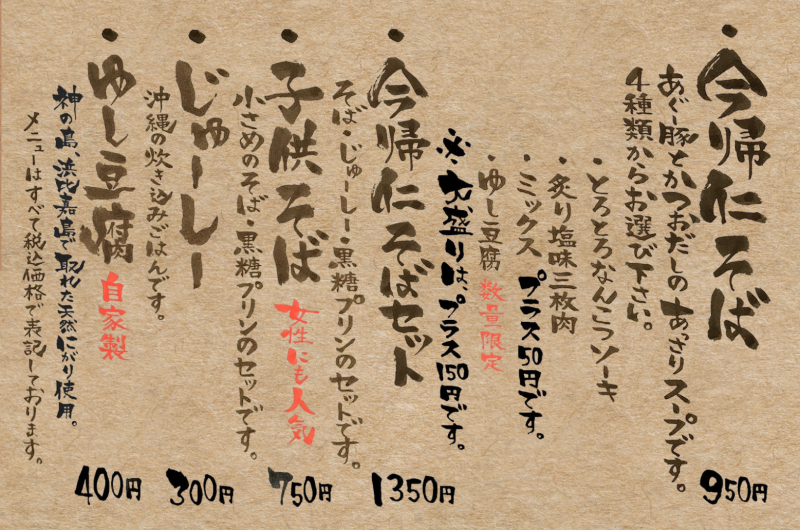 ・今帰仁そば
950円
あぐー豚とかつおだしのあっさりスープです。
4種類からお選び下さい。
・とろとろなんこつソーキ
・炙り塩味三枚肉
・ミックス プラス50円です。
・ゆし豆腐 数量限定
※大盛りは、プラス150円です。
・今帰仁そばセット
1350円
そば・じゅーしー・黒糖プリンのセットです。
・子供そば
女性にも人気
750円
小さめのそば・黒糖プリンのセットです。
・じゅーしー
300円
沖縄の炊き込みごはんです。
・ゆし豆腐 自家製
400円
神の島、浜比嘉島で取れた天然にがり使用。
メニューはすべて税込価格で表記しております。